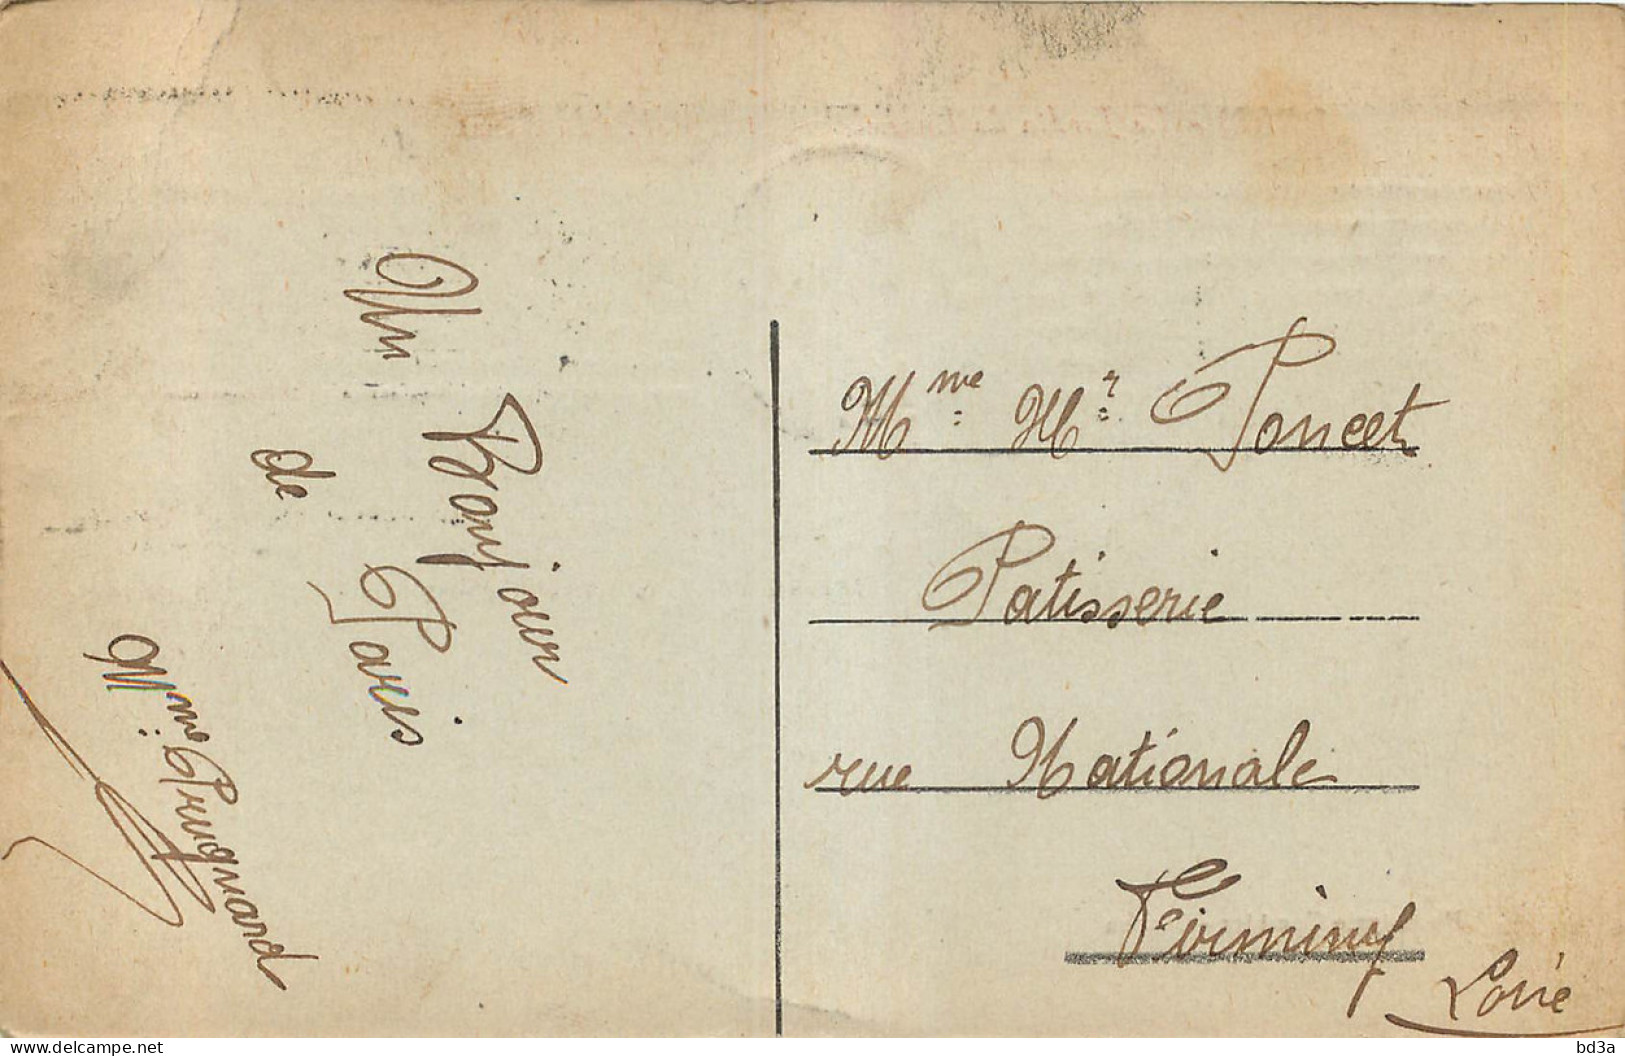 Un
Bonjour
de Paris
Mme Prugnard
Mme Mr Poncet
Patisserie
rue Nationale
Firminy
Loire
bd3a